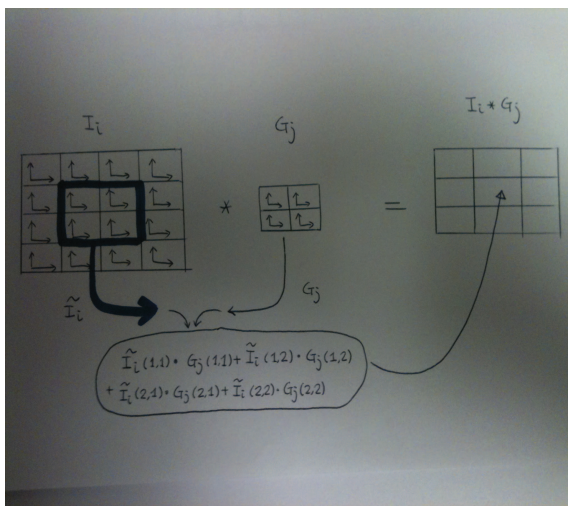 I_i
G_j
I_i * G_j
*
=
Ĩ_i
G_j
Ĩ_i(1,1) · G_j(1,1) + Ĩ_i(1,2) · G_j(1,2)
+ Ĩ_i(2,1) · G_j(2,1) + Ĩ_i(2,2) · G_j(2,2)